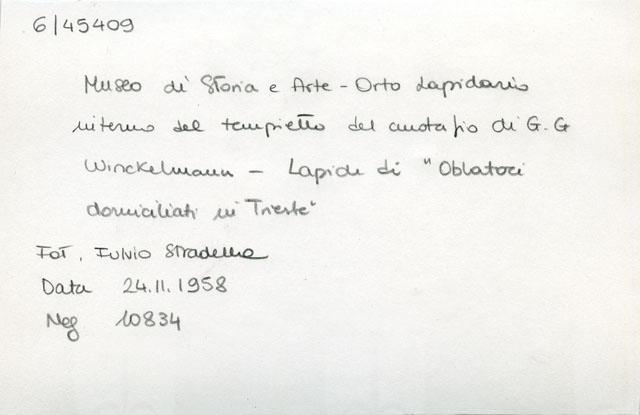 6/45409
Museo di Storia e Arte - Orto Lapidario
interno del tempietto del cenotafio di G.G
Winckelmann - Lapide di "Oblatori
domiciliati in Trieste"
Fot. Fulvio Stradella
Data 24.11.1958
Neg 10834